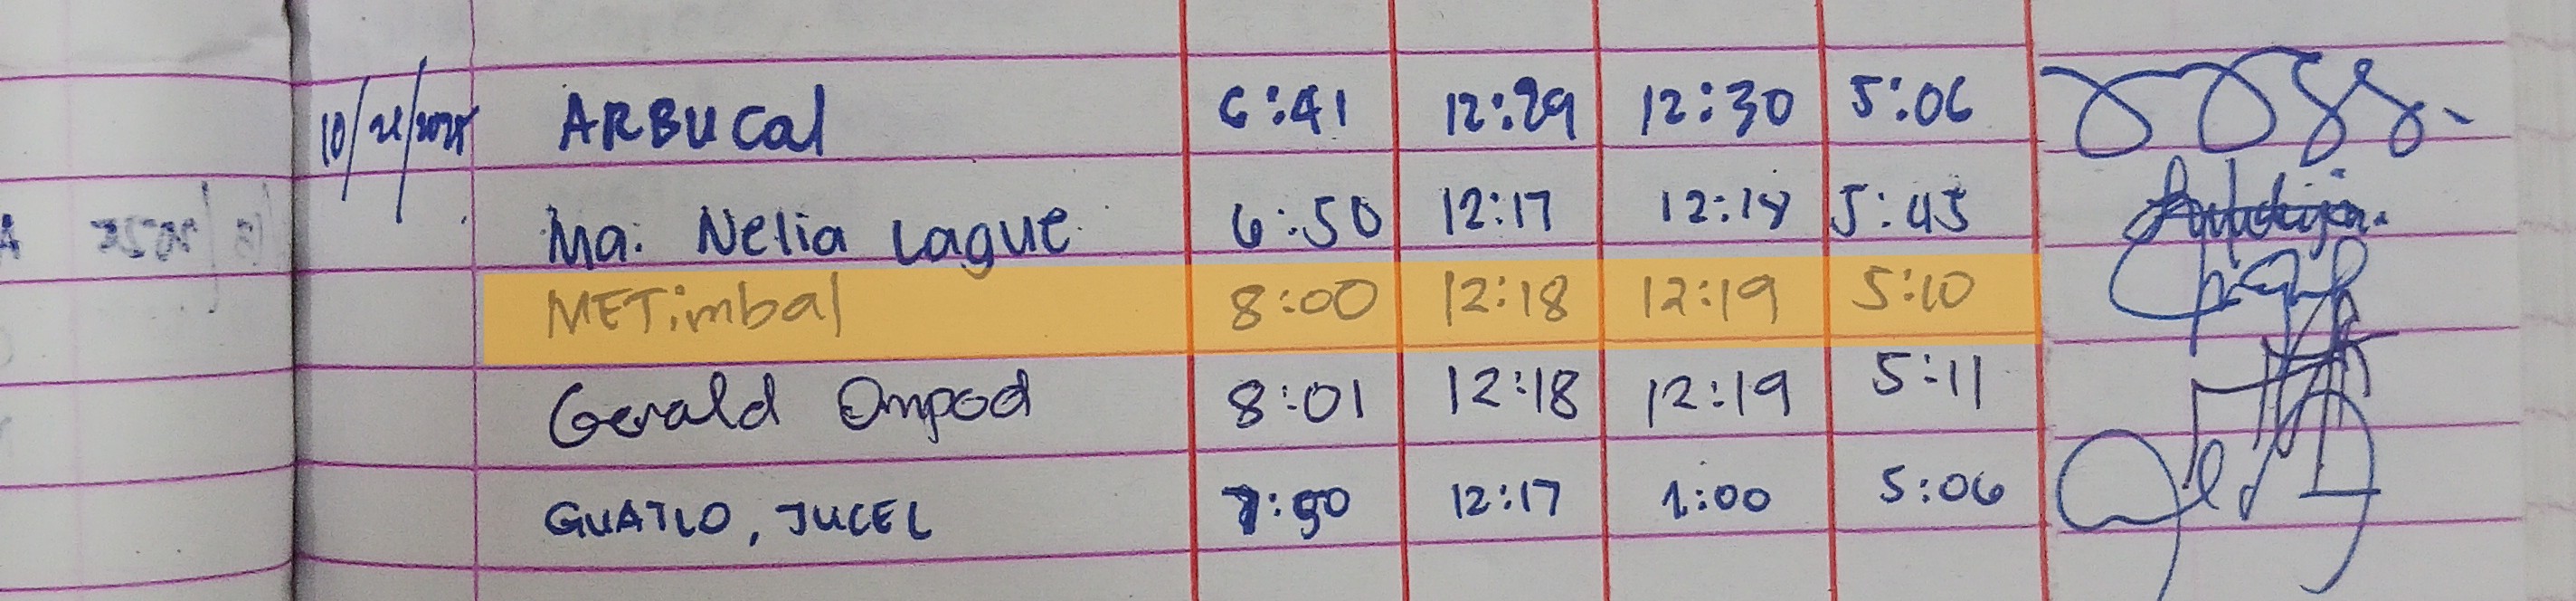 ARBUCal 6:41 12:29 12:30 5:06
Ma. Nelia Lague 6:50 12:17 12:18 5:45
METimbal 8:00 12:18 12:19 5:10
Gerald Ompod 8:01 12:18 12:19 5:11
GUATLO, JUCEL 7:50 12:17 1:00 5:06